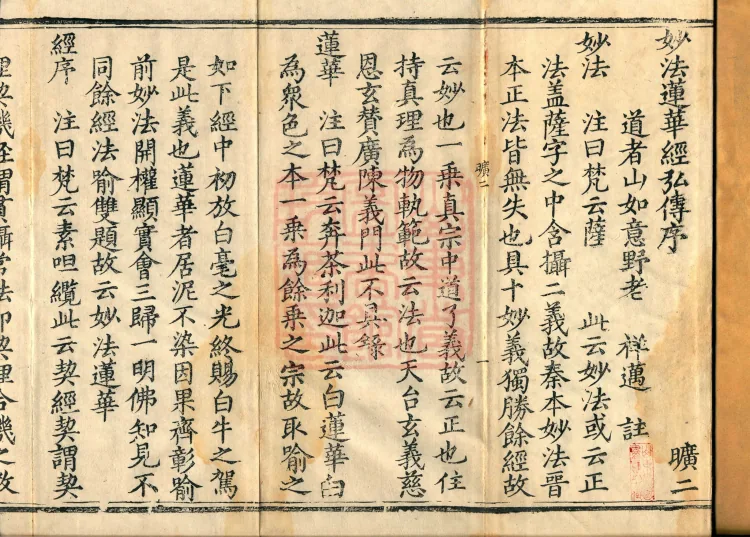 妙法蓮華經弘傳序
曠二
道者山如意野老 祥邁 註
妙法 注曰梵云薩 此云妙法或云正
法盖薩字之中含攝二義故秦本妙法晋
本正法皆無失也具十妙義獨勝餘經故
曠二 一
云妙也一乗真宗中道了義故云正也住
持真理為物軌範故云法也天台玄義慈
恩玄賛廣陳義門此不具錄
蓮華 注曰梵云奔荼利迦此云白蓮華白
為衆色之本一乗為餘乗之宗故取喻之
如下經中初放白毫之光終賜白牛之駕
是此義也蓮華者居泥不染因果齊彰喻
前妙法開權顯實會三歸一明佛知見不
同餘經法喻雙題故云妙法蓮華
經序 注曰梵云素呾纜此云契經契謂契
理契機經謂貫攝常法即契理合機之教